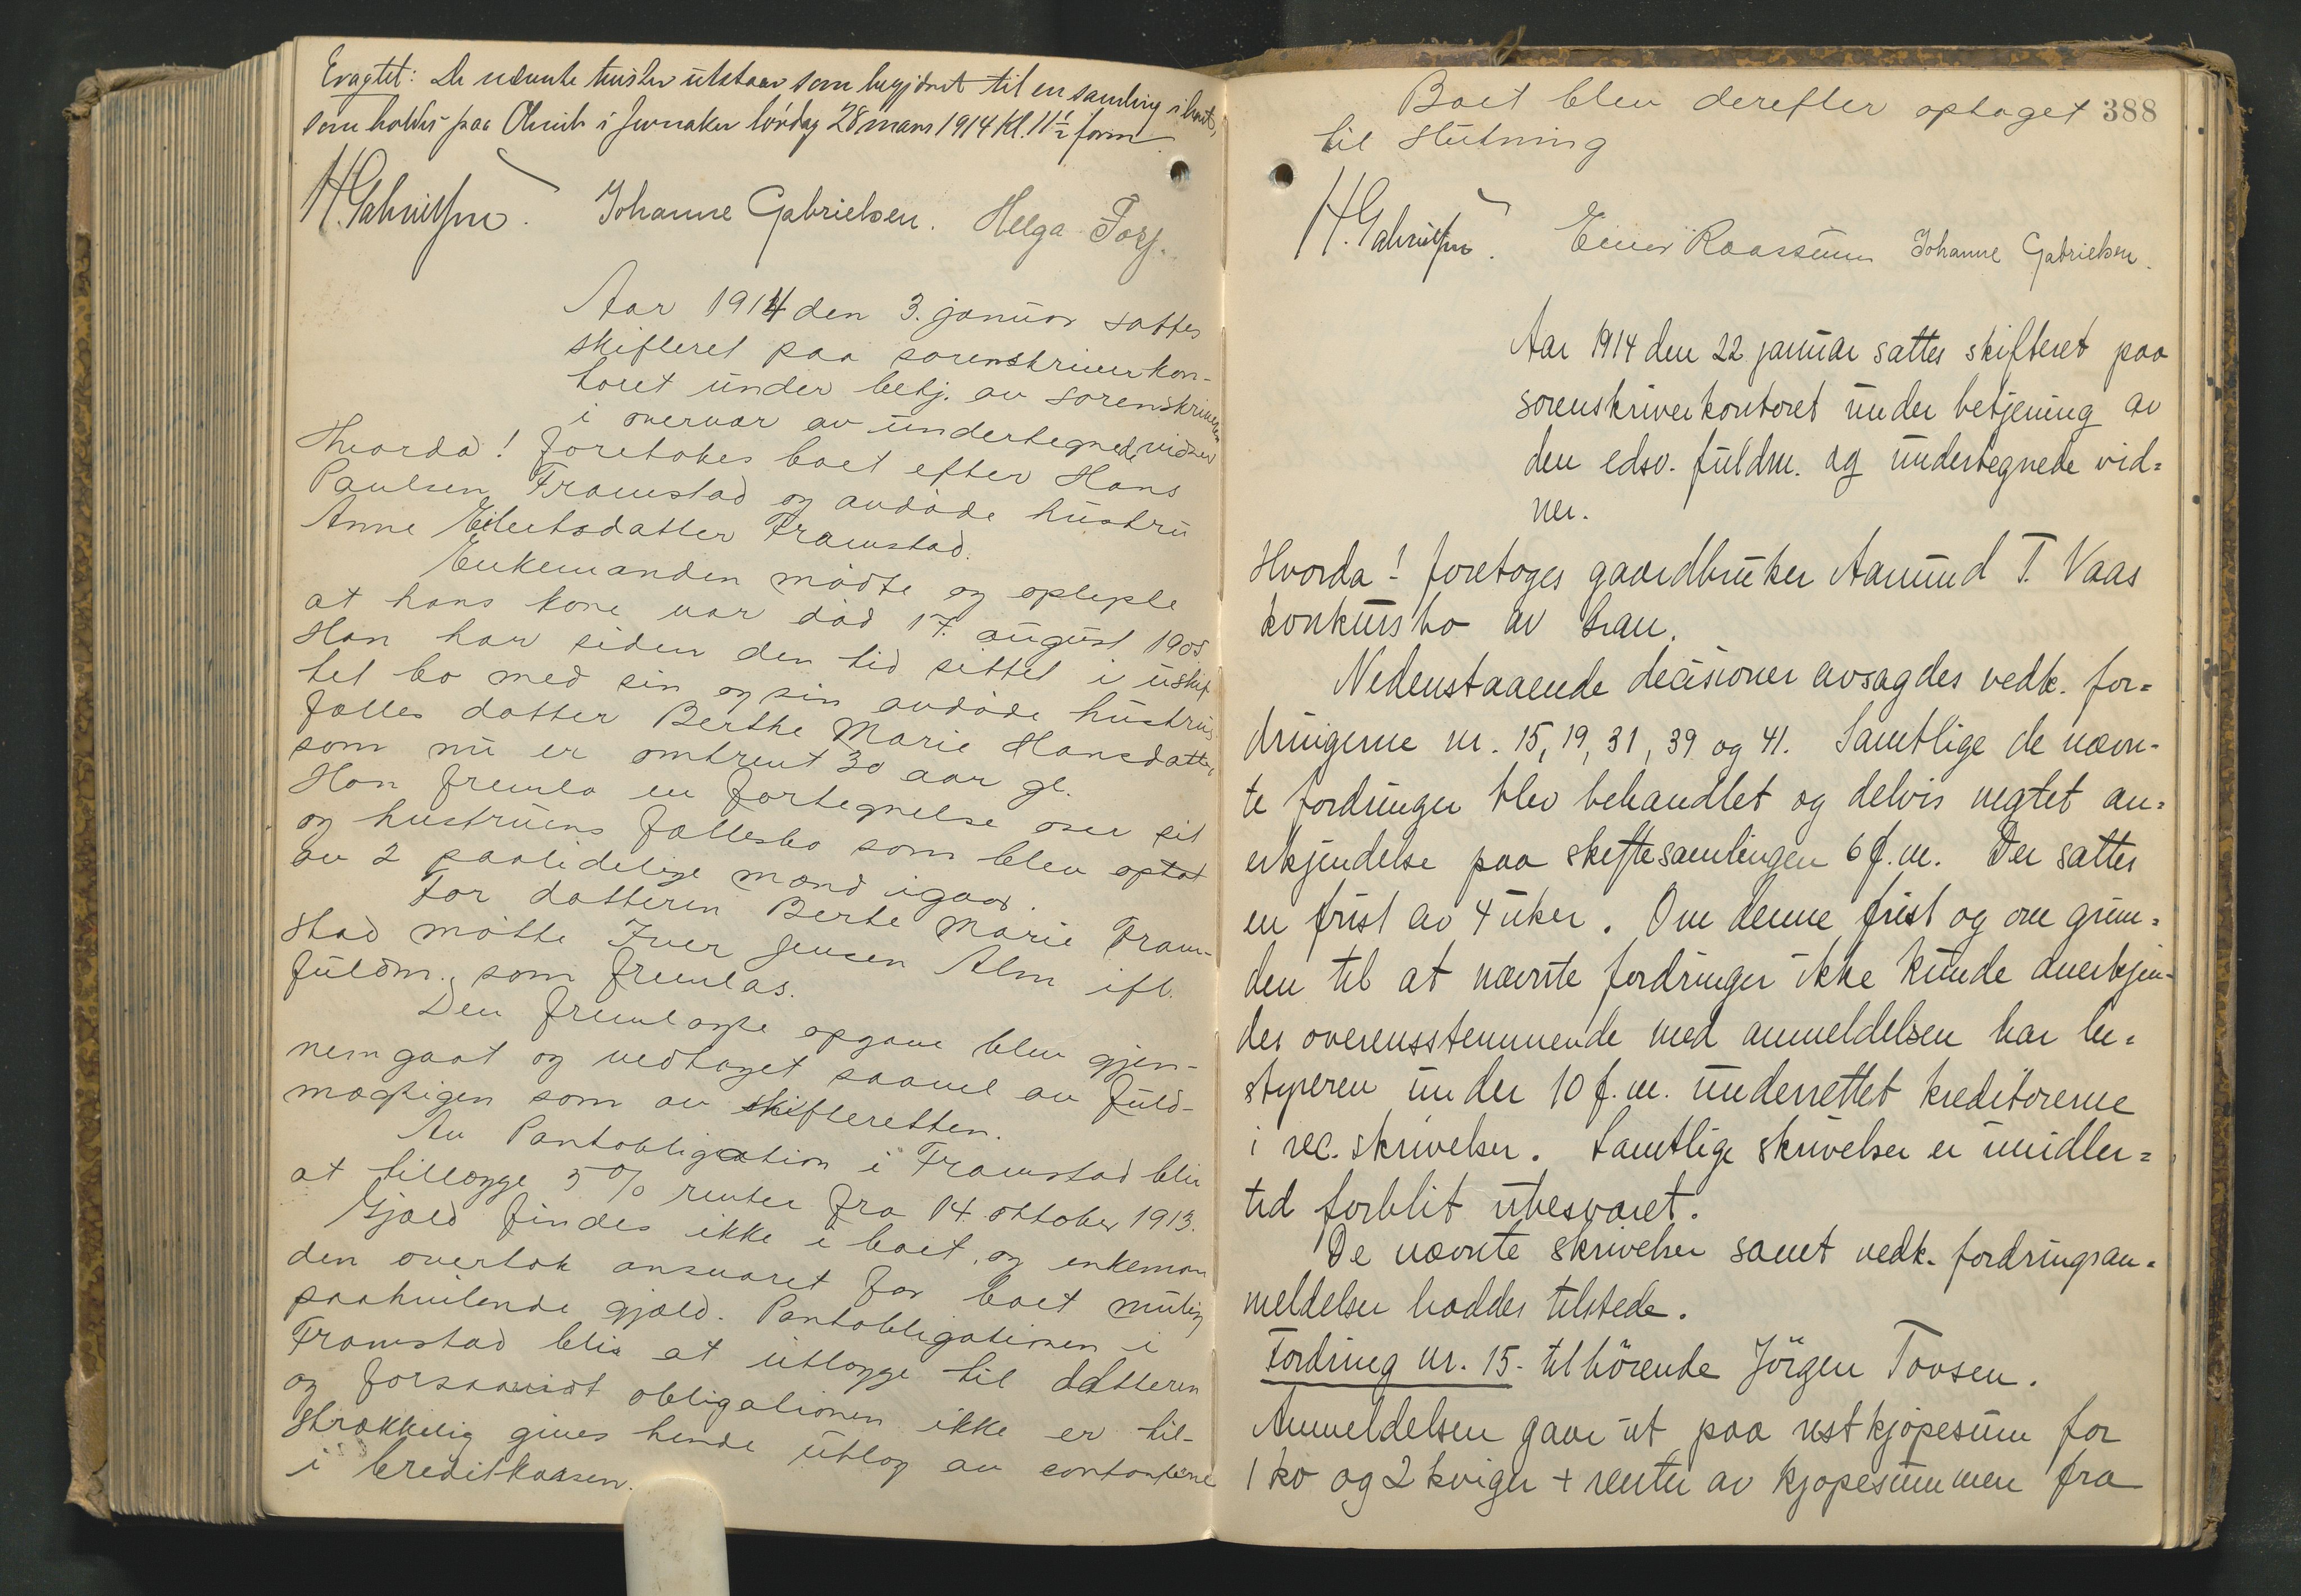 Eragtet: De nævnte tvister utstaar som begjært til en samling i boet,
som holdes paa Olimb i Jevnaker lørdag 28 mars 1914 kl. 11½ form.
Johanne Gabrielsen. Helga
Aar 1914 den 3. januar sattes
skifteret paa sorenskriverkon-
toret under betj. av sorenskriveren
i overvær av undertegnede vidner
Hvorda! foretokes boet efter Hans
Paulsen Framstad og avdøde hustru
Anne Eilertsdatter Framstad.
Enkemanden mødte og oplyste
at hans kone var død 17. august 1905
Han har siden den tid sittet i uskif-
tet bo med sin og sin avdøde hustrus
fælles datter Berthe Marie Hansdatter,
som nu er omtrent 30 aar gl.
Han fremla en fortegnelse over sit
og hustruens fællesbo som blev optat
av 2 paalidelige mænd igaar.
For datteren Berte Marie Fram-
stad møtte Iver Jensen Alm ifl.
fuldm. som fremlas.
Den fremlagte opgave blev gjen-
nemgaat og vedtaget saavel av fuld-
mægtigen som av skifteretten.
Av Pantobligation i Framstad blir
at tillægge 5 % renter fra 14. oktober 1913.
Gjæld findes ikke i boet, og enkeman
den overtok ansvaret for boet mulig
paahvilende gjæld. Pantobligationen i
Framstad blir at utlægge til datteren
og forsaavidt obligationen ikke er til-
strækkelig gives hende utlæg av contantene
i Creditkassen.
Boet blev derefter optaget 388
til slutning
Raassum Johanne Gabrielsen.
Aar 1914 den 22 januar sattes skifteret paa
sorenskriverkontoret under betjening av
den edsv. fuldm. og undertegnede vid=
ner.
Hvorda! foretoges gaardbruker Aamund T. Vaas
konkursbo av Gran.
Nedenstaaende decisioner avsagdes vedk. for=
dringerne nr. 15, 19, 31, 39 og 41. Samtlige de nævn-
te fordringer blev behandlet og delvis negtet an=
erkjendelse paa skiftesamlingen 6 f.m. Der sattes
en frist av 4 uker. Om denne frist og om grun=
den til at nævnte fordringer ikke kunde anerkjen-
des overensstemmende med anmeldelsen har be=
styreren under 10 f.m. underrettet kreditorerne
i rec. skrivelser. Samtlige skrivelser er imidler=
tid forblit ubesvaret.
De nævnte skrivelser samt vedk. fordringsan=
meldelser haddes tilstede.
Fordring nr. 15. tilhörende Jörgen Tovsen.
Anmeldelsen gaar ut paa restkjøpesum for
1 ko og 2 kviger + renter av kjøpesummen fra